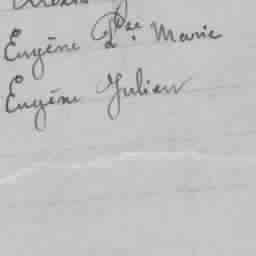 Eugène Pse. Marie
Eugène Julien